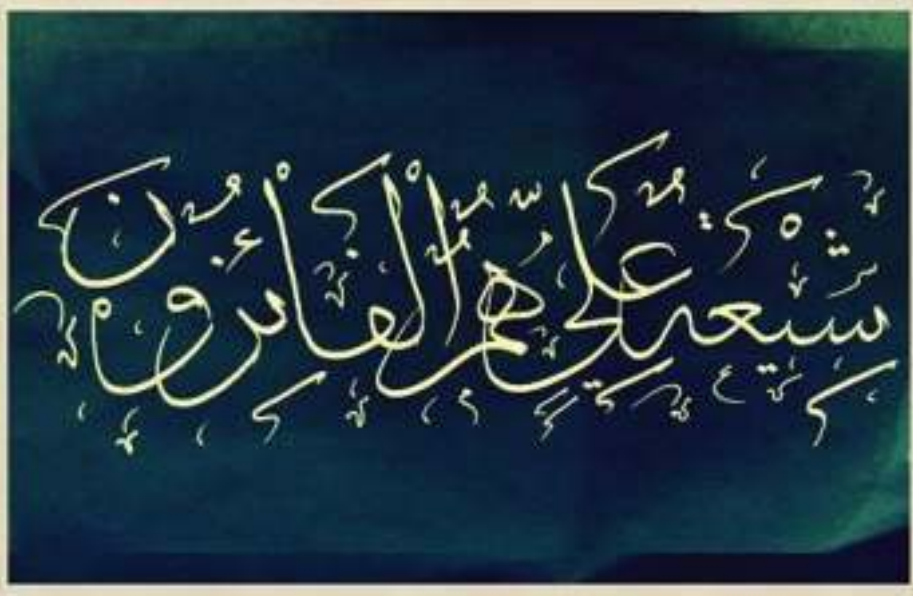 شيعة علي هم الفائزون